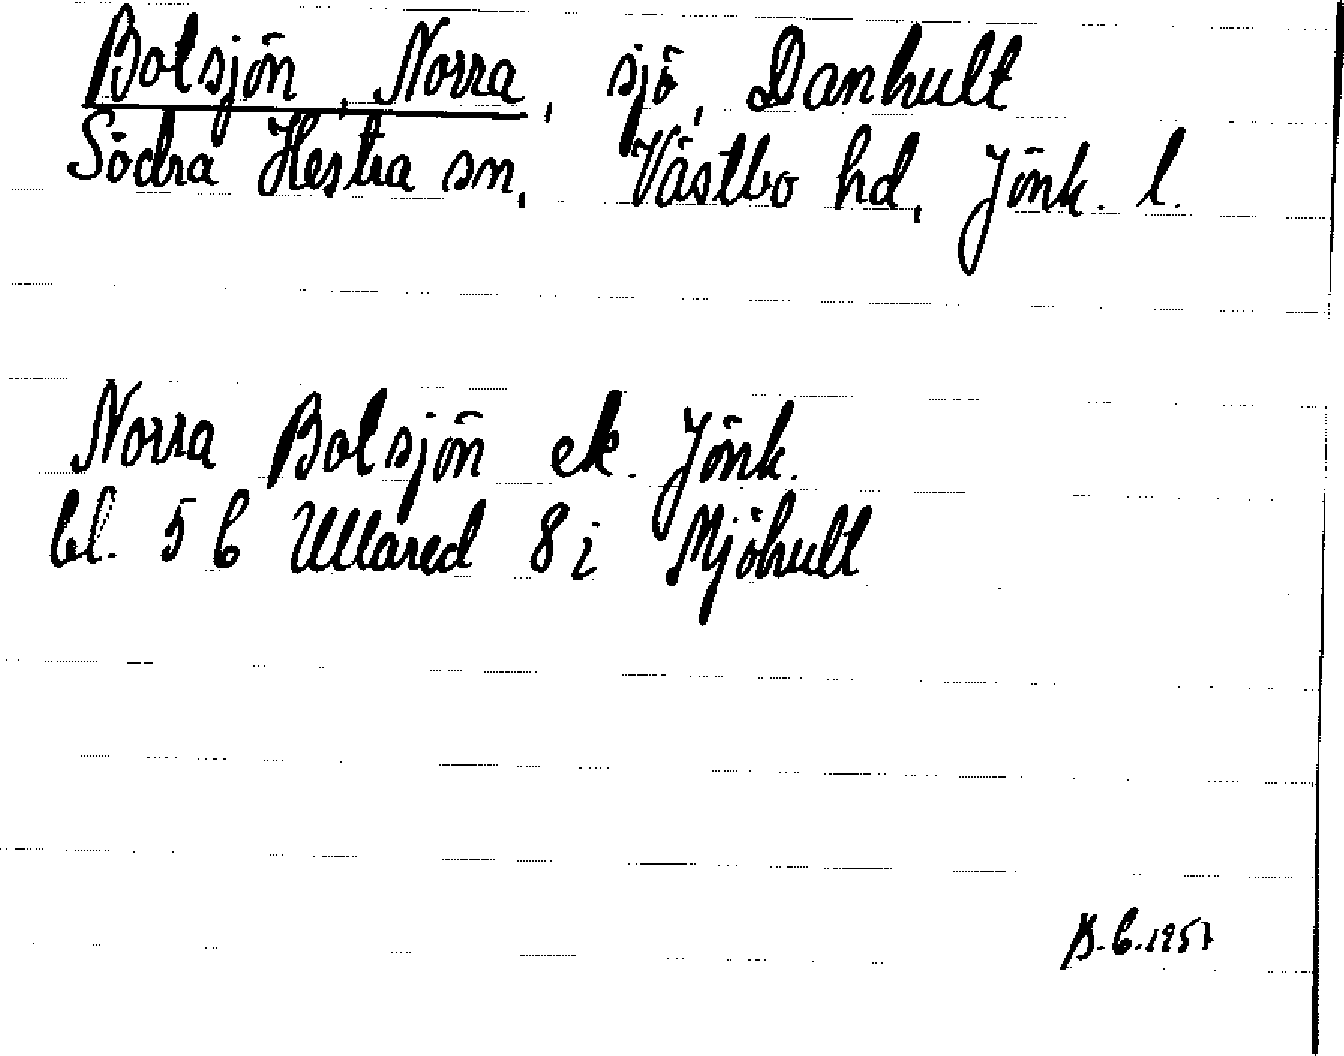 Bolsjön, Norra, sjö, Danhult
Södra Hestra sn, Västbo hd, Jönk. l.
Norra Bolsjön ek. Jönk.
bl. 5 C Ullared 8 i Mjöhult
B.C. 1957